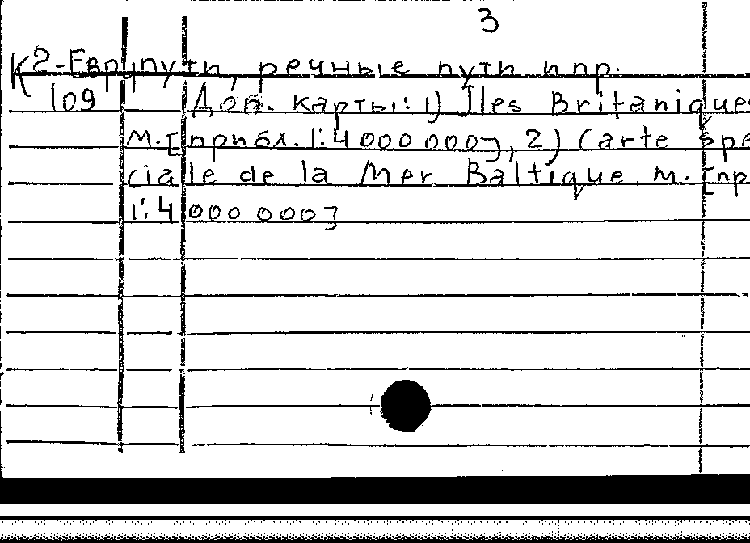 3
К2-Евр, пути, речные пути и пр.
109 Доп. карты: 1) Iles Britaniques
м. [прибл. 1:4 000 000], 2) Carte Spe
ciale de la Mer Baltique м. [пр
1:4 000 000]